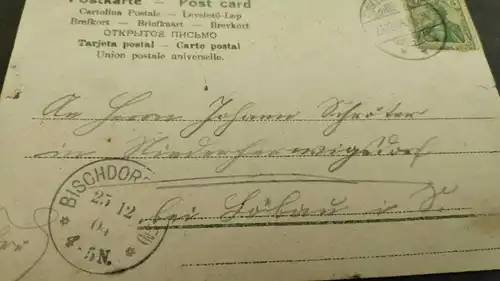 Postkarte — Post card
Cartolina Postale — Levelező-Lap
Brefkort — Briefkaart — Brevkort
ОТКРЫТОЕ ПИСЬМО
Tarjeta postal — Carte postal
Union postale universelle.
An Herrn Johann Schröter
in Niederherwigsdorf
bei Löbau i. S.
BISCHDORF
25 12
4-5N.